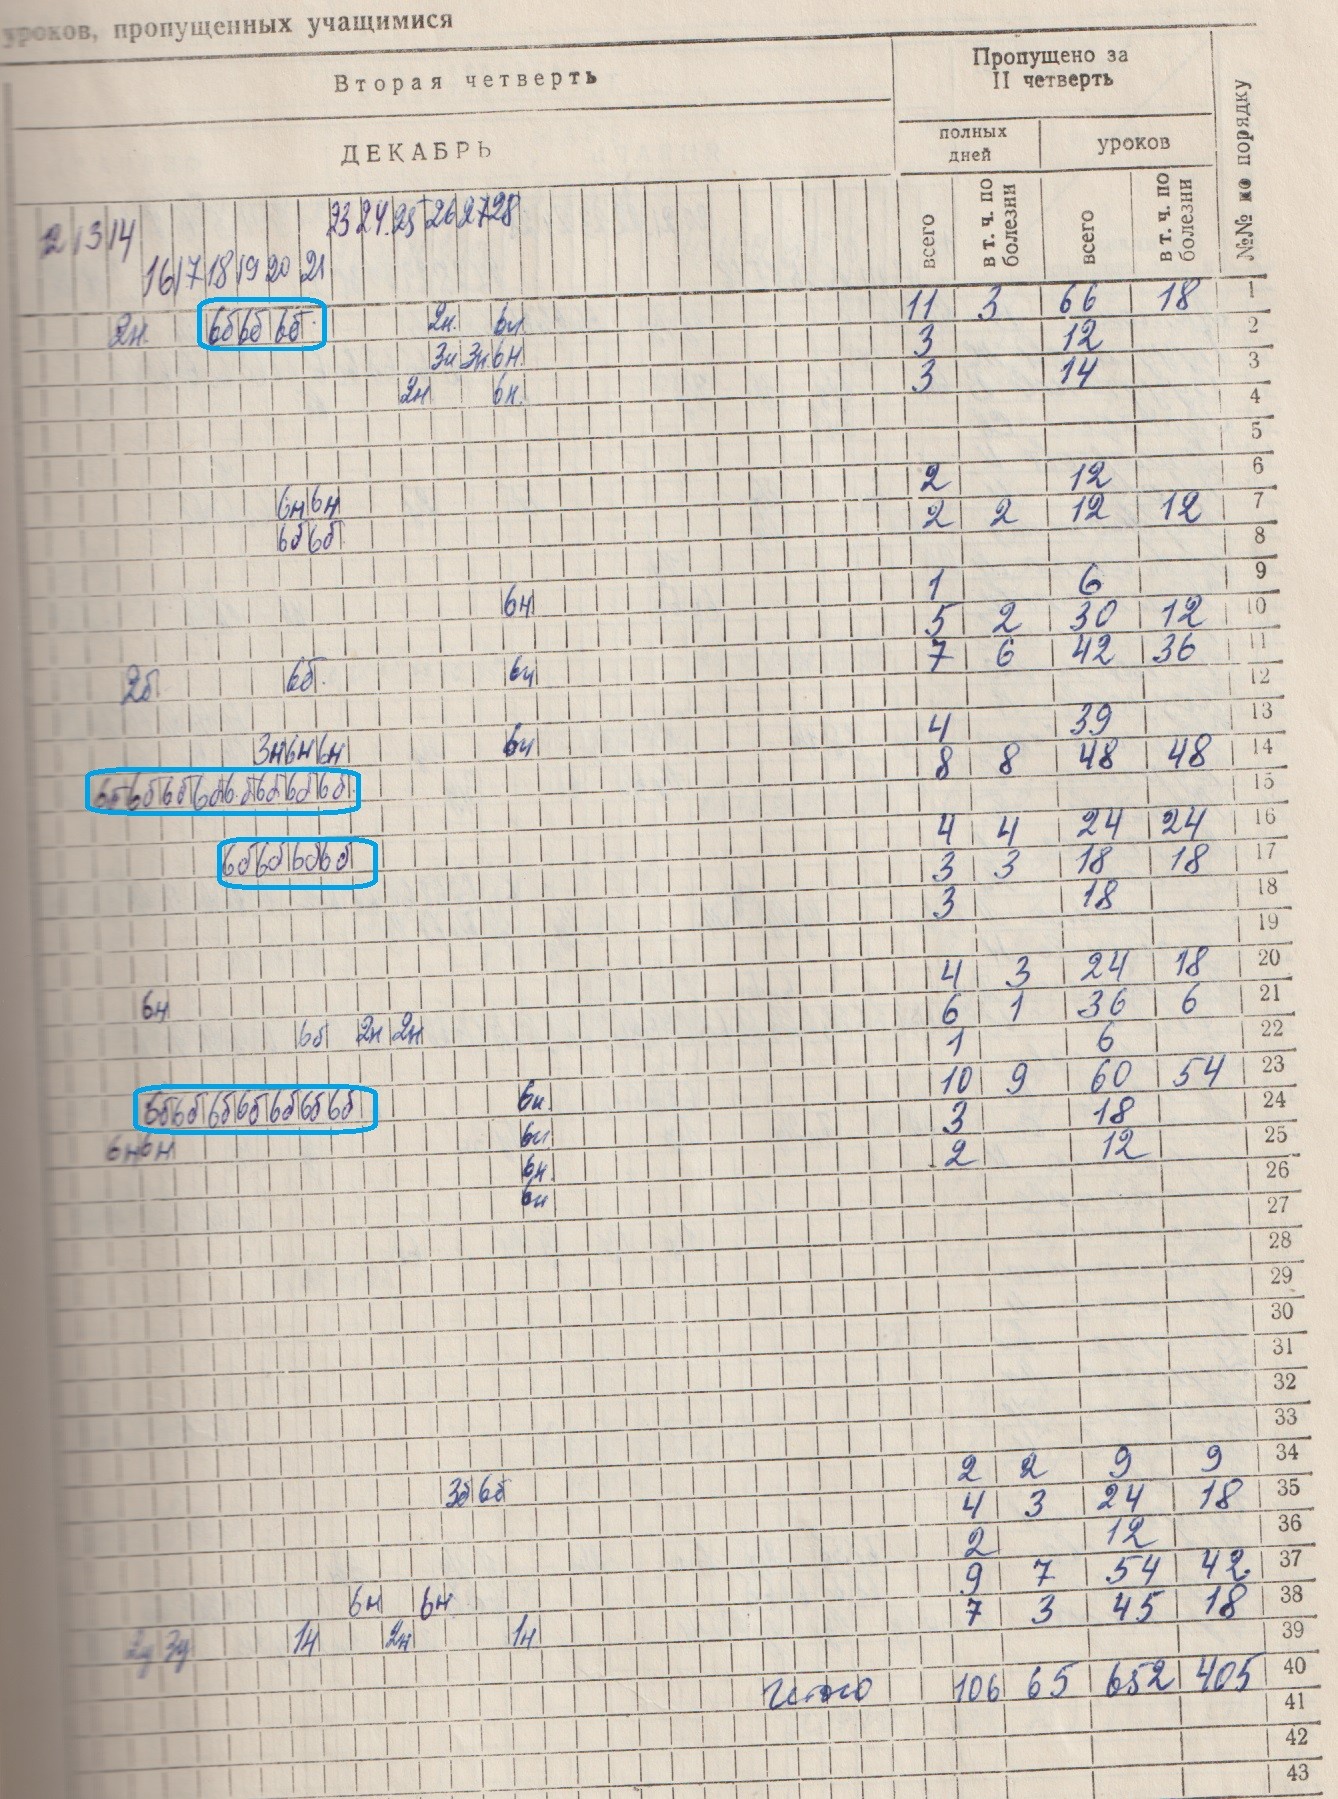 уроков, пропущенных учащимися
Вторая четверть
Пропущено за
II четверть
№№ по порядку
ДЕКАБРЬ
полных дней
уроков
всего
в т. ч. по болезни
всего
в т. ч. по болезни
23 24 25 26 27 28
12 13 14
16 17 18 19 20 21
1
2н. 6б 6б 6б. 2н. 6н. 11 3 66 18
2
3н 3н. 6н. 3 12
3
2н 6н. 3 14
4
5
6
6н 6н 2 12
7
6б 6б 2 2 12 12
8
9
6н 1 6
10
5 2 30 12
11
2б 6б. 6н 7 6 42 36
12
13
3н 6н 6н 6н 4 39
14
6б 6б 6б 6б 6б 6б 6б 6б. 8 8 48 48
15
16
6б 6б 6б 6б 4 4 24 24
17
3 3 18 18
18
3 18
19
20
6н 4 3 24 18
21
6б 2н 2н 6 1 36 6
22
1 6
23
6б 6б 6б 6б 6б 6б 6б 6н. 10 9 60 54
24
6н 6н 6н. 3 18
25
6н. 2 12
26
6н
27
28
29
30
31
32
33
34
3б 6б 2 2 9 9
35
4 3 24 18
36
2 12
37
6н 6н 9 7 54 42
38
2у 3у 1н 2н 1н 7 3 45 18
39
40
Итого 106 65 652 405
41
42
43